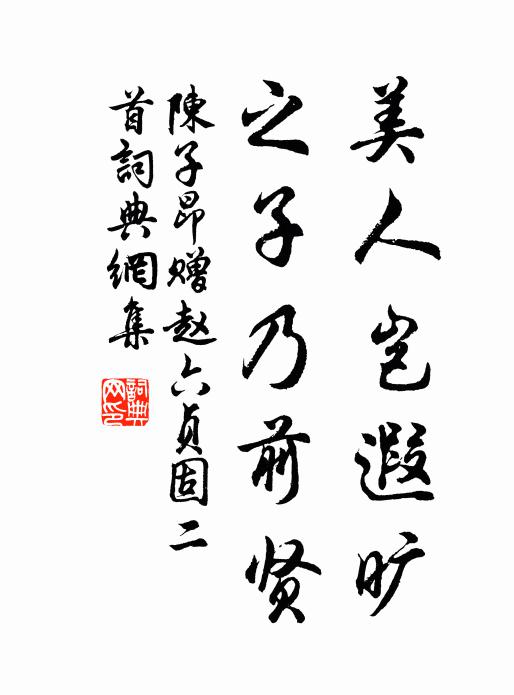 美人岂遐旷
之子乃前贤
陳子昂赠赵六貞固二
首詞典網集
詞典
网印